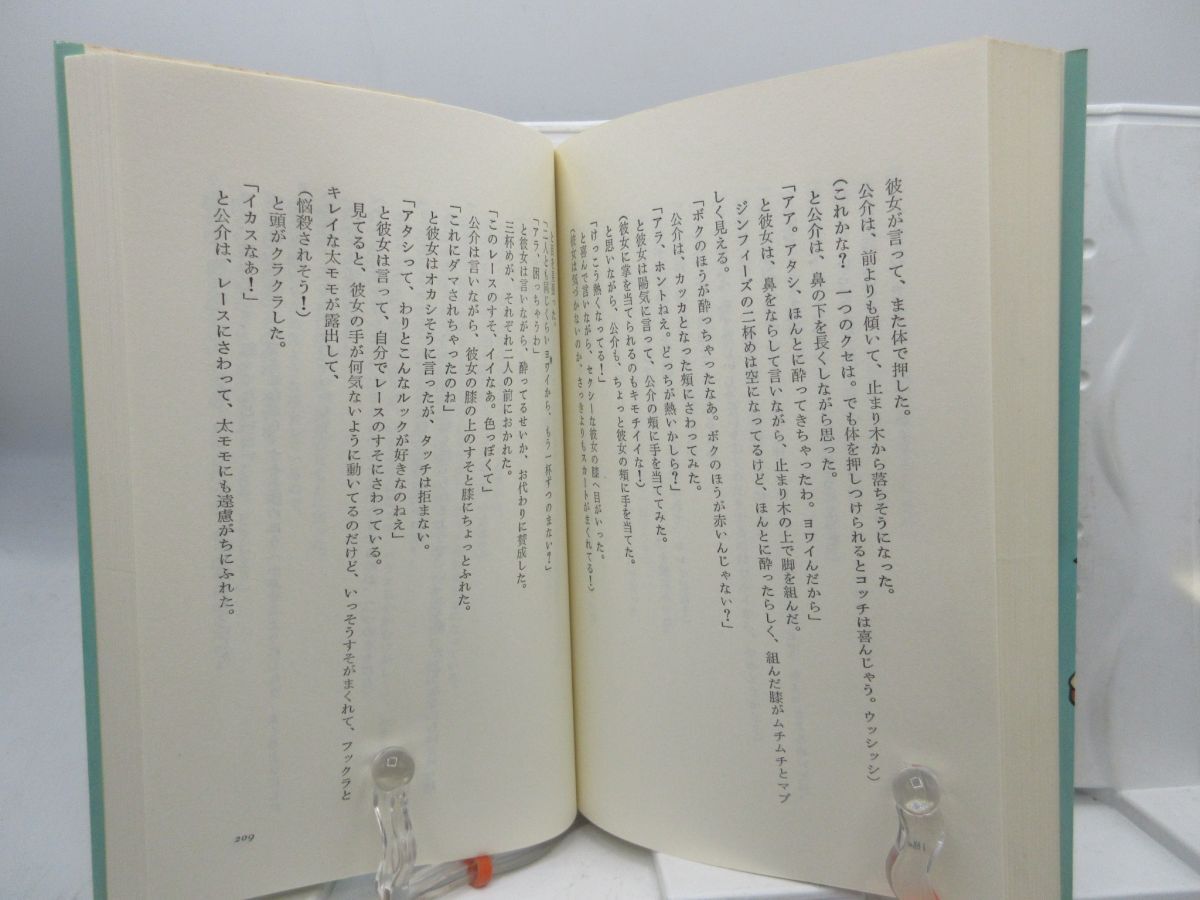 彼女が言って、また体で押した。
公介は、前よりも傾いて、止まり木から落ちそうになった。
(これかな?　一つのクセは。でも体を押しつけられるとコッチは喜んじゃう。ウッシッシ)
と公介は、鼻の下を長くしながら思った。
「アア。アタシ、ほんとに酔ってきちゃったわ。ヨワイんだから」
と彼女は、鼻をならして言いながら、止まり木の上で脚を組んだ。
ジンフィーズの二杯めは空になってるけど、ほんとに酔ったらしく、組んだ膝がムチムチとマブ
しく見える。
「ボクのほうが酔っちゃったなあ。ボクのほうが赤いんじゃない?」
公介は、カッカとなった頬にさわってみた。
「アラ、ホントねえ。どっちが熱いかしら?」
と彼女は陽気に言って、公介の頬に手を当ててみた。
(彼女に掌を当てられるのもキモチイイな!)
と思いながら、公介も、ちょっと彼女の頬に手を当てた。
「けっこう熱くなってる!」
と喜んで言いながら、セクシーな彼女の膝へ目がいった。
(彼女は気づかないのか、さっきよりもスカートがまくれてる!)
「二人とも同じくらいヨワイから、もう一杯ずつのまない?」
「アラ、困っちゃうわ」
と彼女は言いながら、酔ってるせいか、お代わりに賛成した。
三杯めが、それぞれ二人の前におかれた。
「このレースのすそ、イイなあ。色っぽくて」
公介は言いながら、彼女の膝の上のすそと膝にちょっとふれた。
「これにダマされちゃったのね」
と彼女はオカシそうに言ったが、タッチは拒まない。
「アタシって、わりとこんなルックが好きなのねえ」
と彼女は言って、自分でレースのすそにさわっている。
見てると、彼女の手が何気ないように動いてるのだけど、いっそうすそがまくれて、フックラと
キレイな太モモが露出して、
(悩殺されそう!)
と頭がクラクラした。
「イカスなあ!」
と公介は、レースにさわって、太モモにも遠慮がちにふれた。
209